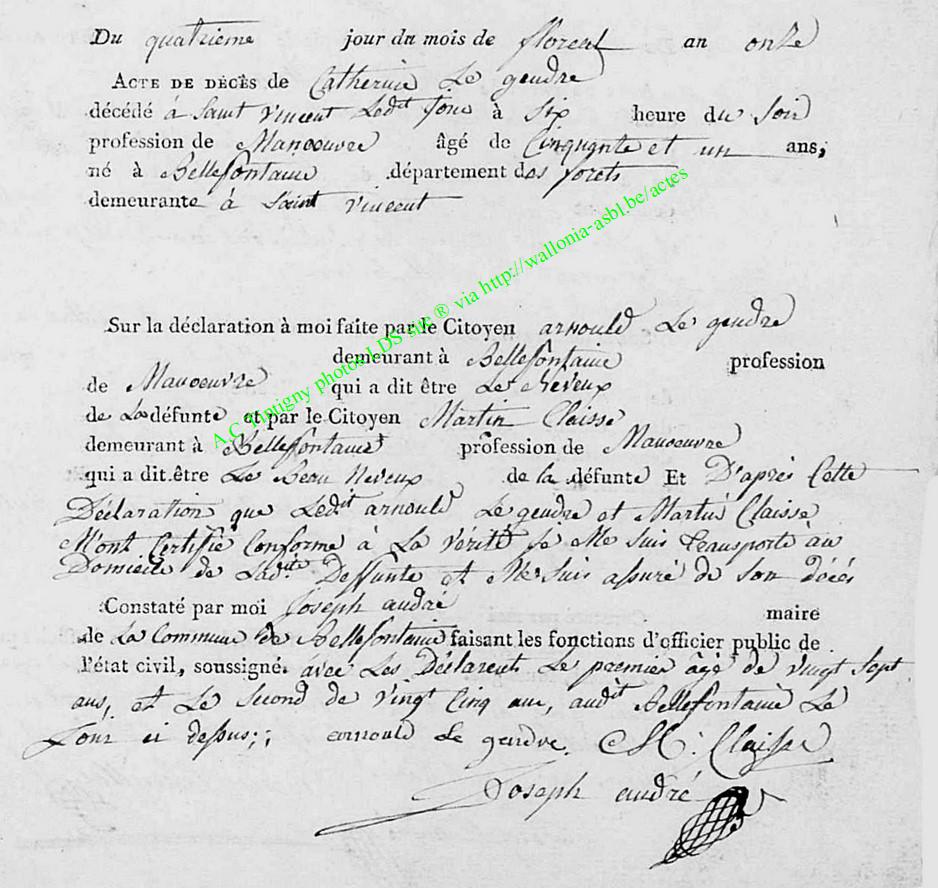 Du quatrieme jour du mois de floreal an onze
ACTE DE DÉCÈS de Catherine Le gendre
décédé à Saint vincent Ledit Jour à Six heure du Soir
profession de Manoeuvre âgé de Cinquante et un ans,
né à Bellefontaine département des forets
demeurante à Saint vincent
Sur la déclaration à moi faite par le Citoyen arnould Le gendre
demeurant à Bellefontaine profession
de Manoeuvre qui a dit être Le Neveux
de La défunte et par le Citoyen Martin Claisse
demeurant à Bellefontaine profession de Manoeuvre
qui a dit être Le Beau Neveux de la défunte Et D'après Cette
Déclaration que Ledit arnould Le gendre et Martin Claisse
M'ont Certifié Conforme à La Vérité Je Me suis transporté au
Domicile de Ladite Deffunte et Me suis assuré de son décés
Constaté par moi Joseph andré maire
de La Commune de Bellefontaine faisant les fonctions d'officier public de
l'état civil, soussigné. avec Les Déclarents Le premier âgé de vingt sept
ans, et Le Second de vingt Cinq ans, audit Bellefontaine Le
Jour ci dessus;; arnould Le gendre. M: Claisse
Joseph andré
A.C. Tintigny photos LDS sur ® via http://wallonia-asbl.be/actes